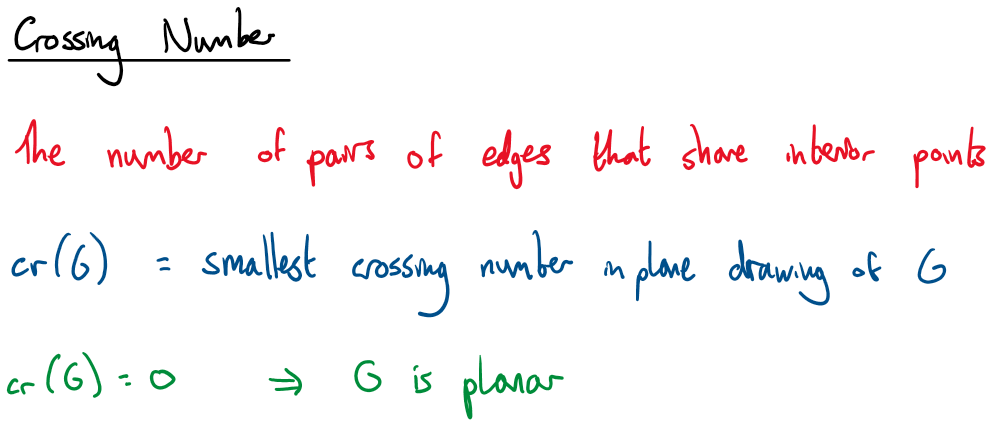 Crossing Number
The number of pairs of edges that share interior points
cr(G) = smallest crossing number in plane drawing of G
cr(G) = 0 ⇒ G is planar